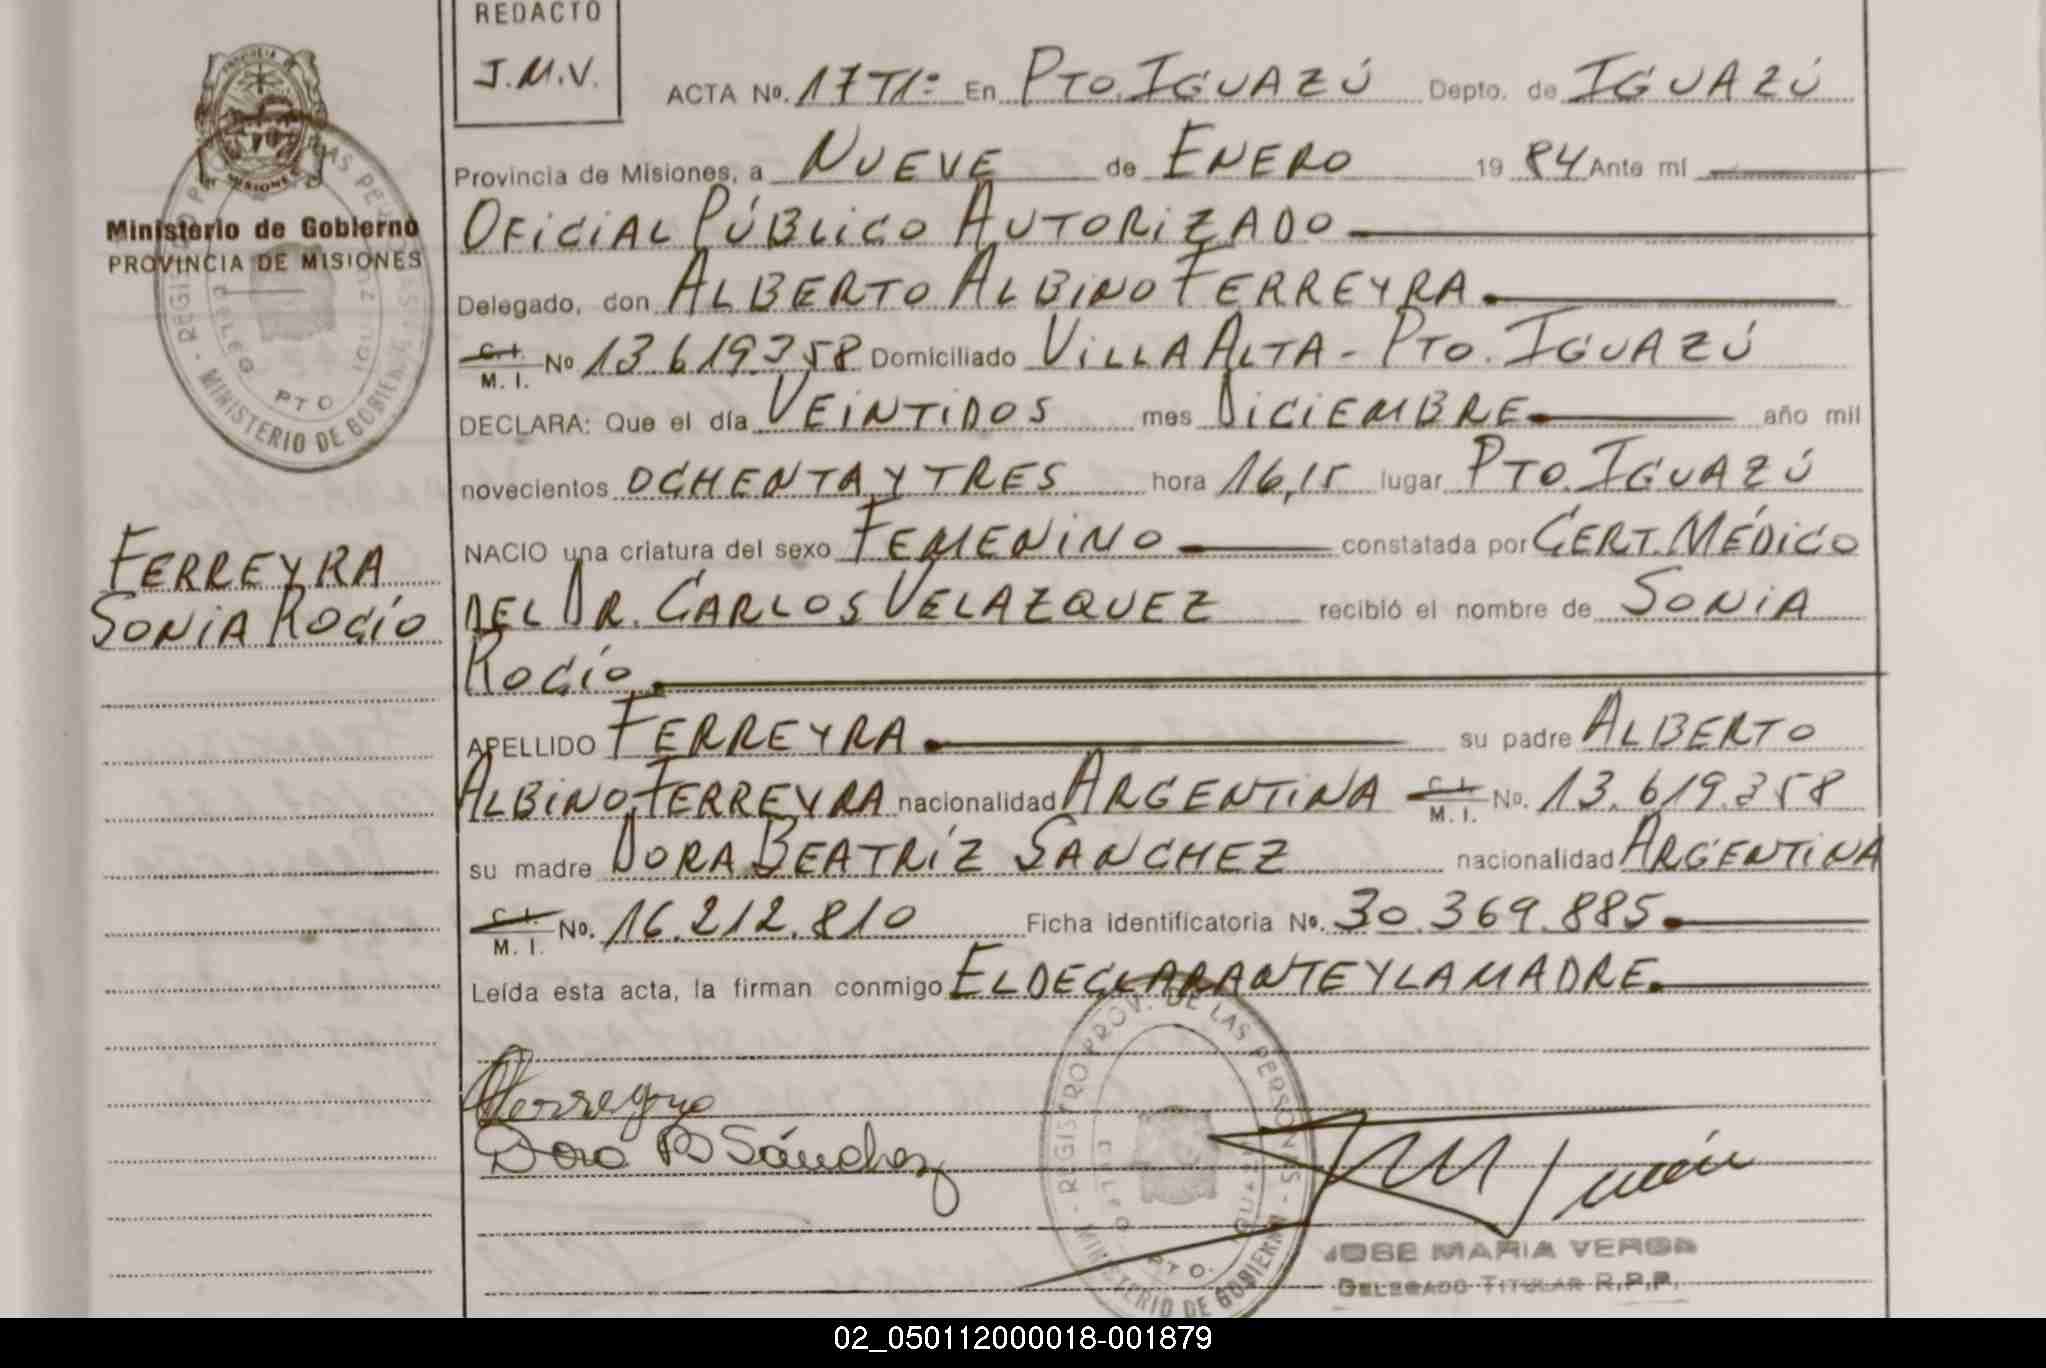 REDACTO
J.M.V.
ACTA Nº. 17 T1º En PTO. IGUAZÚ Depto. de IGUAZÚ
Provincia de Misiones, a NUEVE de ENERO 1984 Ante mí
OFICIAL PÚBLICO AUTORIZADO
Delegado, don ALBERTO ALBINO FERREYRA
C. I. M. I. Nº 13.619.358 Domiciliado VILLA ALTA - PTO. IGUAZÚ
DECLARA: Que el día VEINTIDOS mes DICIEMBRE año mil
novecientos OCHENTA Y TRES hora 16,15 lugar PTO. IGUAZÚ
NACIO una criatura del sexo FEMENINO constatada por CERT. MÉDICO
DEL DR. CARLOS VELAZQUEZ recibió el nombre de SONIA
ROCÍO
APELLIDO FERREYRA su padre ALBERTO
ALBINO FERREYRA nacionalidad ARGENTINA C. I. M. I. Nº. 13.619.358
su madre DORA BEATRÍZ SANCHEZ nacionalidad ARGENTINA
C. I. M. I. Nº. 16.212.810 Ficha identificatoria Nº. 30.369.885
Leída esta acta, la firman conmigo EL DECLARANTE Y LA MADRE
Dora B Sánchez
JOSE MARIA VERON
DELEGADO TITULAR R.P.P.
PROVINCIA DE MISIONES
Ministerio de Gobierno
PROVINCIA DE MISIONES
REGISTRO PROV. DE LAS PERSONAS - MINISTERIO DE GOBIERNO
DELEG. PTO. IGUAZU
FERREYRA
SONIA ROCÍO
REGISTRO PROV. DE LAS PERSONAS - MINISTERIO DE GOBIERNO
DELEG. PTO. IGUAZU
02_050112000018-001879